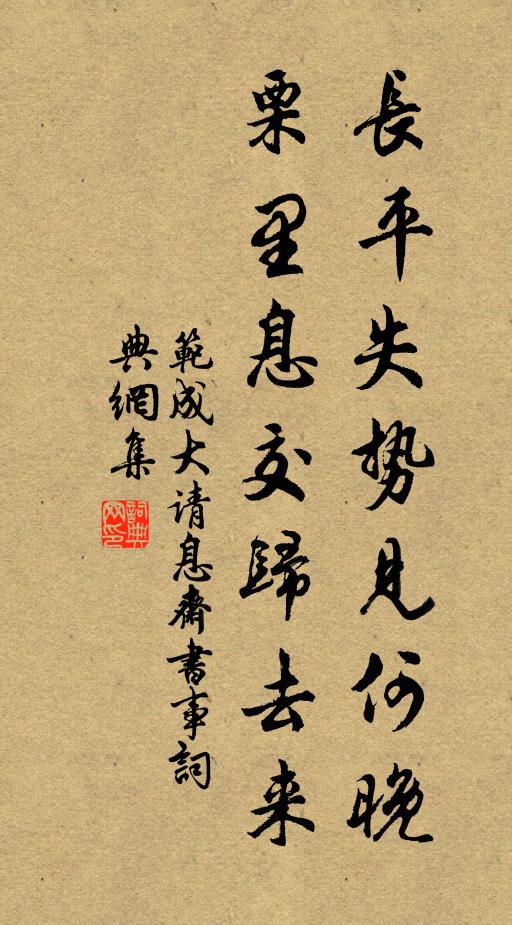 長平失势見何晚
栗里息交歸去来
範成大请息齋書事詞
典網集
詞典网印